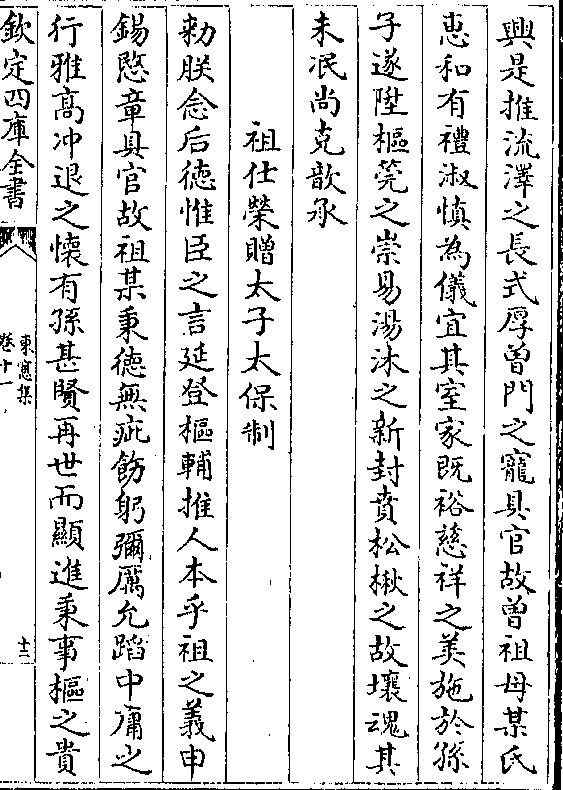 興是推流澤之長式厚曽門之寵具官故曽祖母某氏
恵和有禮淑慎為儀宜其室家既裕慈祥之美施於孫
子遂陞樞筦之崇易湯沐之新封賁松楸之故壤魂其
未泯尚克歆承
祖仕榮贈太子太保制
勅朕念后徳惟臣之言延登樞輔推人本乎祖之義申
錫愍章具官故祖某秉徳無疵飭躬彌厲允蹈中庸之
行雅髙冲退之懷有孫甚賢再世而顯進秉事樞之貴
欽定四庫全書
東窻集
卷十一
十三